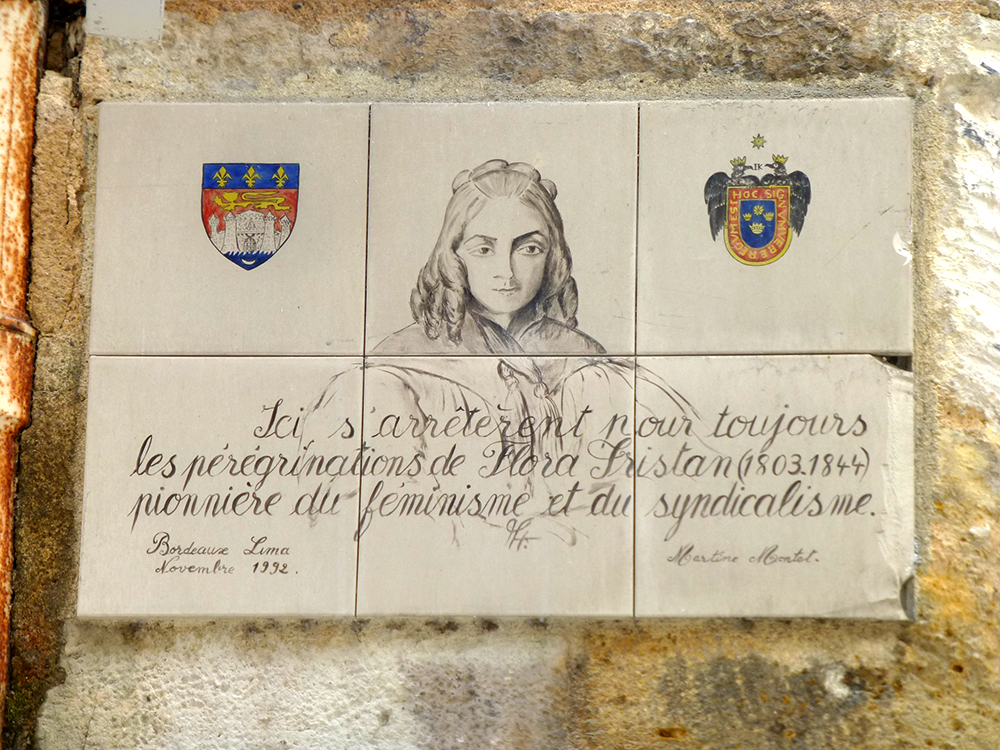 IK
HOC SIGNUM VERE REGUM EST
Ici s'arrêtèrent pour toujours
les pérégrinations de Flora Tristan (1803.1844)
pionnière du féminisme et du syndicalisme.
Bordeaux Lima
Novembre 1992.
Martine Montet.